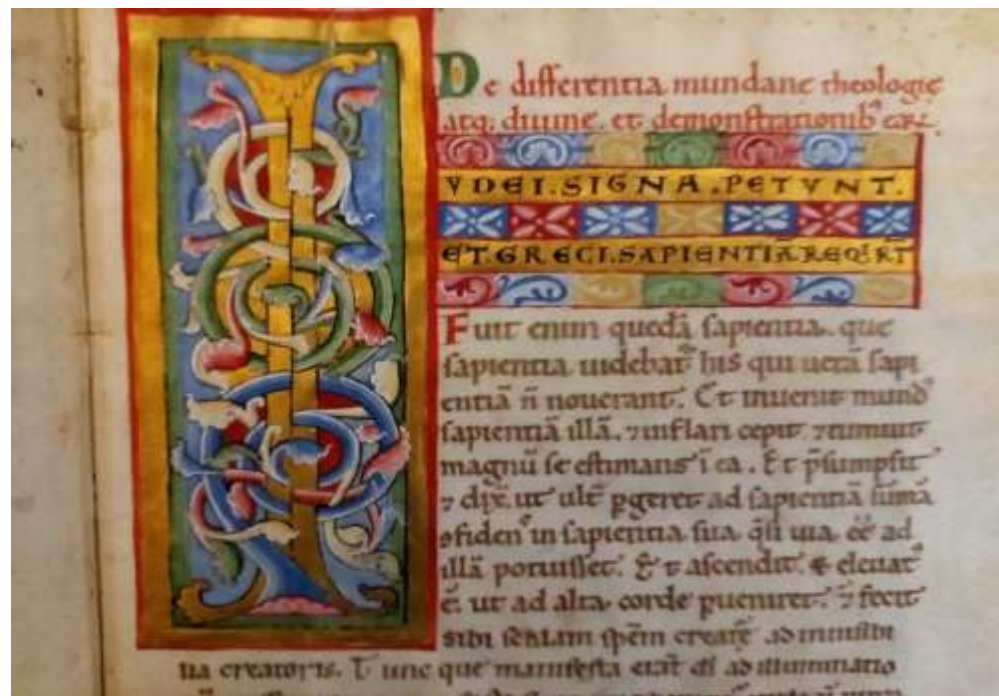 De differentia mundane theologie
atq; divine. et demonstrationib' earu.
IVDEI.SIGNA.PETVNT.
ET.GRECI.SAPIENTIĀ REQIRT
Fuit enim quedā sapientia. que
sapientia uidebat his qui uerā sapi
entiā n̄ nouerant. Et inuenit mund'
sapientiā illā. ⁊ inflari cepit. ⁊ tumuit
magnū se estimans ī ea. Et p̄sumpsit
⁊ dix̄ ut ult pgeret ad sapientiā sūmā
ꝯfidens in sapientia sua q̄si uia eē ad
illā potuisset. Et ascendit. & eleuat'
ē. ut ad alta corde pueniret. ⁊ fecit
sibi scalam spēm creatē ad inuisibi
lia creatoris. Tunc que manifesta erāt dī ad illuminatio